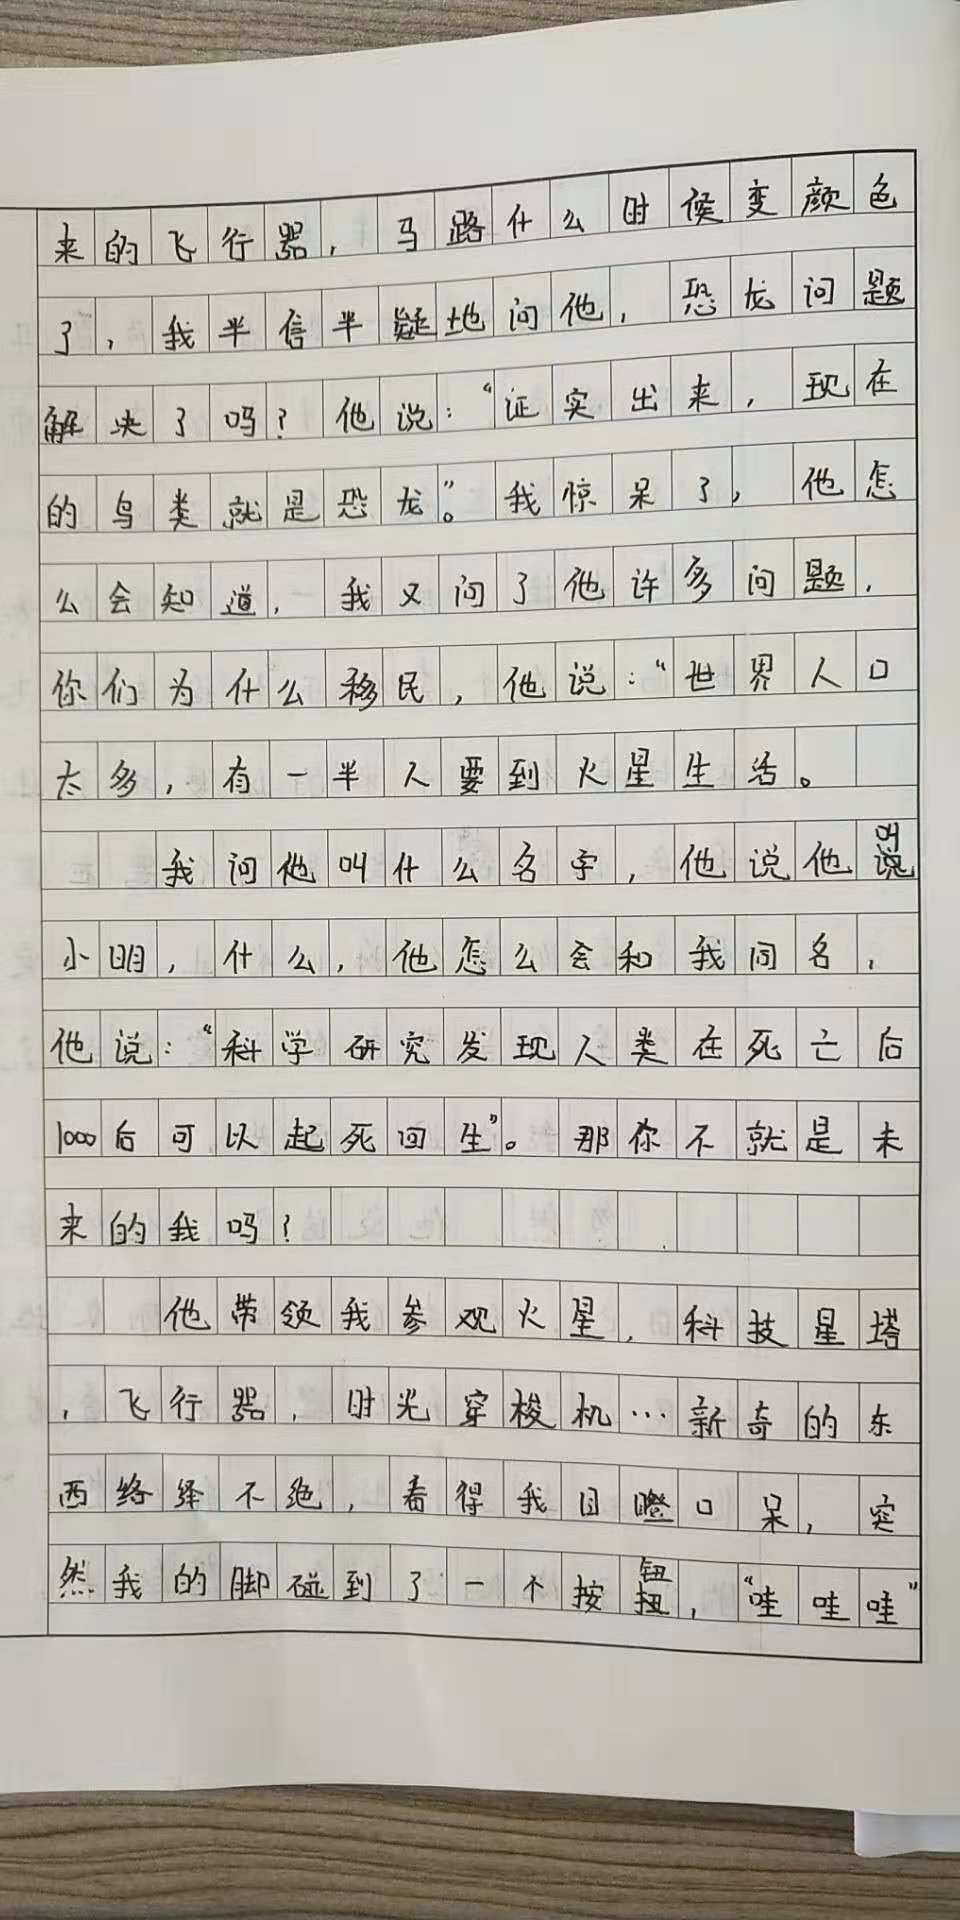 来的飞行器，马路什么时候变颜色
了，我半信半疑地问他，恐龙问题
解决了吗？他说：“证实出来，现在
的鸟类就是恐龙”。我惊呆了，他怎
么会知道，我又问了他许多问题，
你们为什么移民，他说：“世界人口
太多，有一半人要到火星生活。
我问他叫什么名字，他说他叫说
小明，什么，他怎么会和我同名，
他说：“科学研究发现人类在死亡后
1000后可以起死回生”。那你不就是未
来的我吗？
他带领我参观火星，科技星塔
，飞行器，时光穿梭机…新奇的东
西络绎不绝，看得我目瞪口呆，突
然我的脚碰到了一个按钮扭，“哇哇哇”